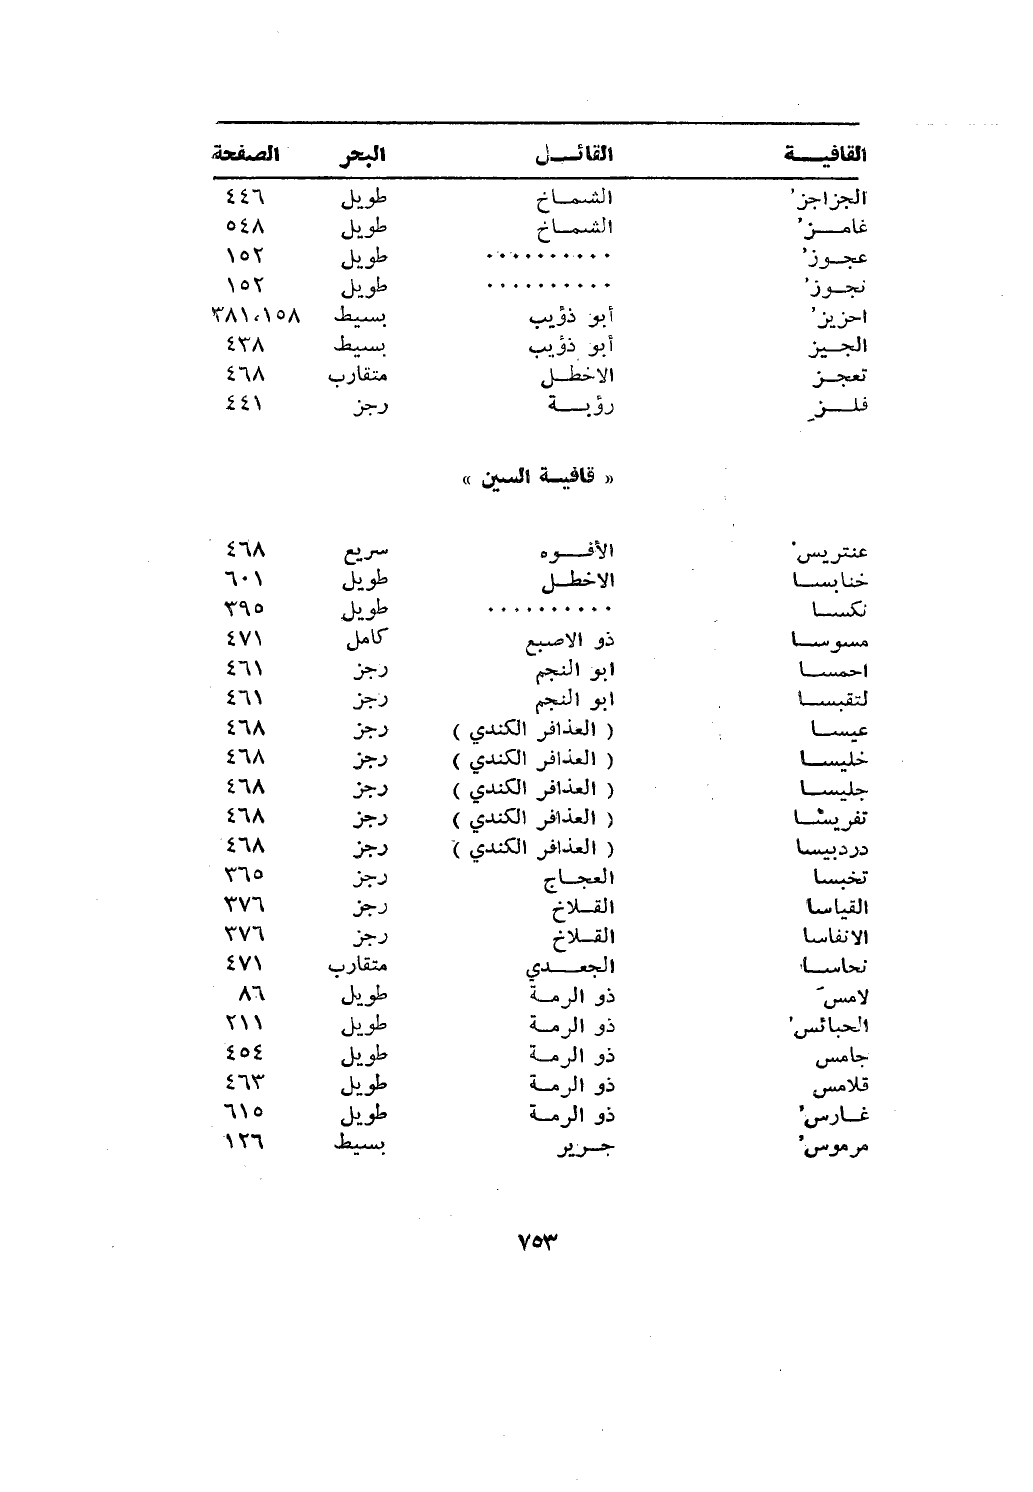 القافيــة القائــل البحر الصفحة
الجزاجزُ الشمــاخ طويل ٤٤٦
غامــزُ الشمــاخ طويل ٥٤٨
عجــوزُ ·········· طويل ١٥٢
نجــوزُ ·········· طويل ١٥٢
احزيزُ أبو ذؤيب بسيط ٣٨١،١٥٨
الجــيز أبو ذؤيب بسيط ٤٣٨
تعجــز الاخطــل متقارب ٤٦٨
فلــزِ رؤبــة رجز ٤٤١
« قافيــة السين »
عنتريسْ الأفــوه سريع ٤٦٨
خنابســا الاخطــل طويل ٦٠١
نكســا ·········· طويل ٣٩٥
مسوســا ذو الاصبع كامل ٤٧١
احمســا ابو النجم رجز ٤٦١
لتقبســا ابو النجم رجز ٤٦١
عيســا ( العذافر الكندي ) رجز ٤٦٨
خليســا ( العذافر الكندي ) رجز ٤٦٨
جليســا ( العذافر الكندي ) رجز ٤٦٨
تفريســا ( العذافر الكندي ) رجز ٤٦٨
دردبيسا ( العذافر الكندي ) رجز ٤٦٨
تخبسا العجــاج رجز ٣٦٥
القياسا القــلاخ رجز ٣٧٦
الانفاسا القــلاخ رجز ٣٧٦
نحاســا الجعــدي متقارب ٤٧١
لامسَ ذو الرمــة طويل ٨٦
الحبائسُ ذو الرمــة طويل ٢١١
جامس ذو الرمــة طويل ٤٥٤
قلامس ذو الرمــة طويل ٤٦٣
غــارسُ ذو الرمــة طويل ٦١٥
مرموسُ جــرير بسيط ١٢٦
٧٥٣